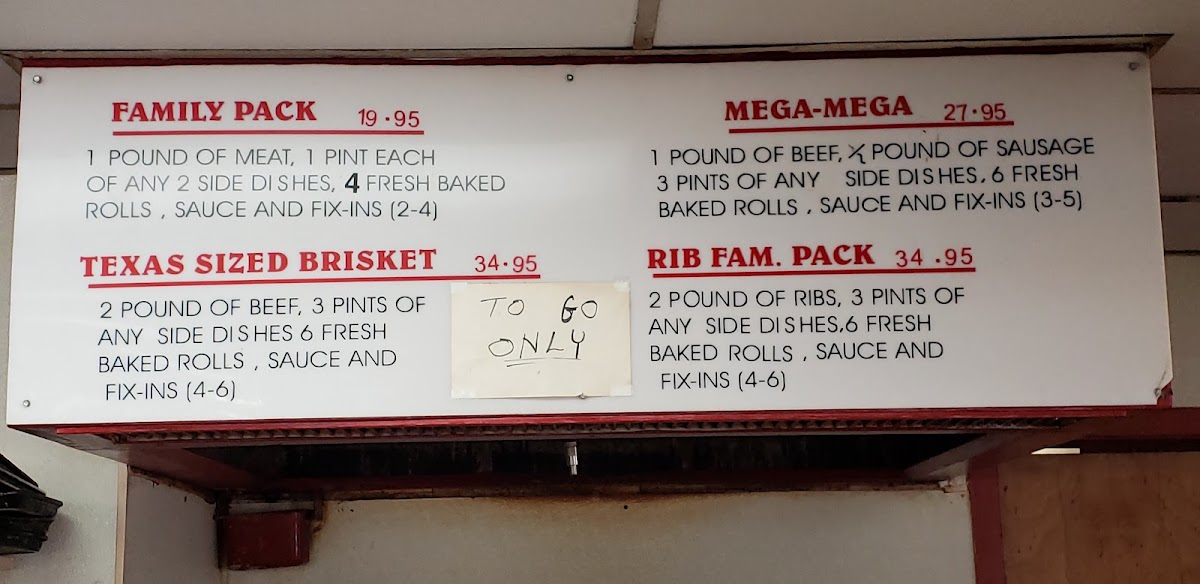 FAMILY PACK 19.95
1 POUND OF MEAT, 1 PINT EACH
OF ANY 2 SIDE DISHES, 4 FRESH BAKED
ROLLS , SAUCE AND FIX-INS (2-4)
MEGA-MEGA 27.95
1 POUND OF BEEF, ½ POUND OF SAUSAGE
3 PINTS OF ANY SIDE DISHES, 6 FRESH
BAKED ROLLS , SAUCE AND FIX-INS (3-5)
TEXAS SIZED BRISKET 34.95
2 POUND OF BEEF, 3 PINTS OF
ANY SIDE DISHES 6 FRESH
BAKED ROLLS , SAUCE AND
FIX-INS (4-6)
TO GO
ONLY
RIB FAM. PACK 34.95
2 POUND OF RIBS, 3 PINTS OF
ANY SIDE DISHES,6 FRESH
BAKED ROLLS , SAUCE AND
FIX-INS (4-6)